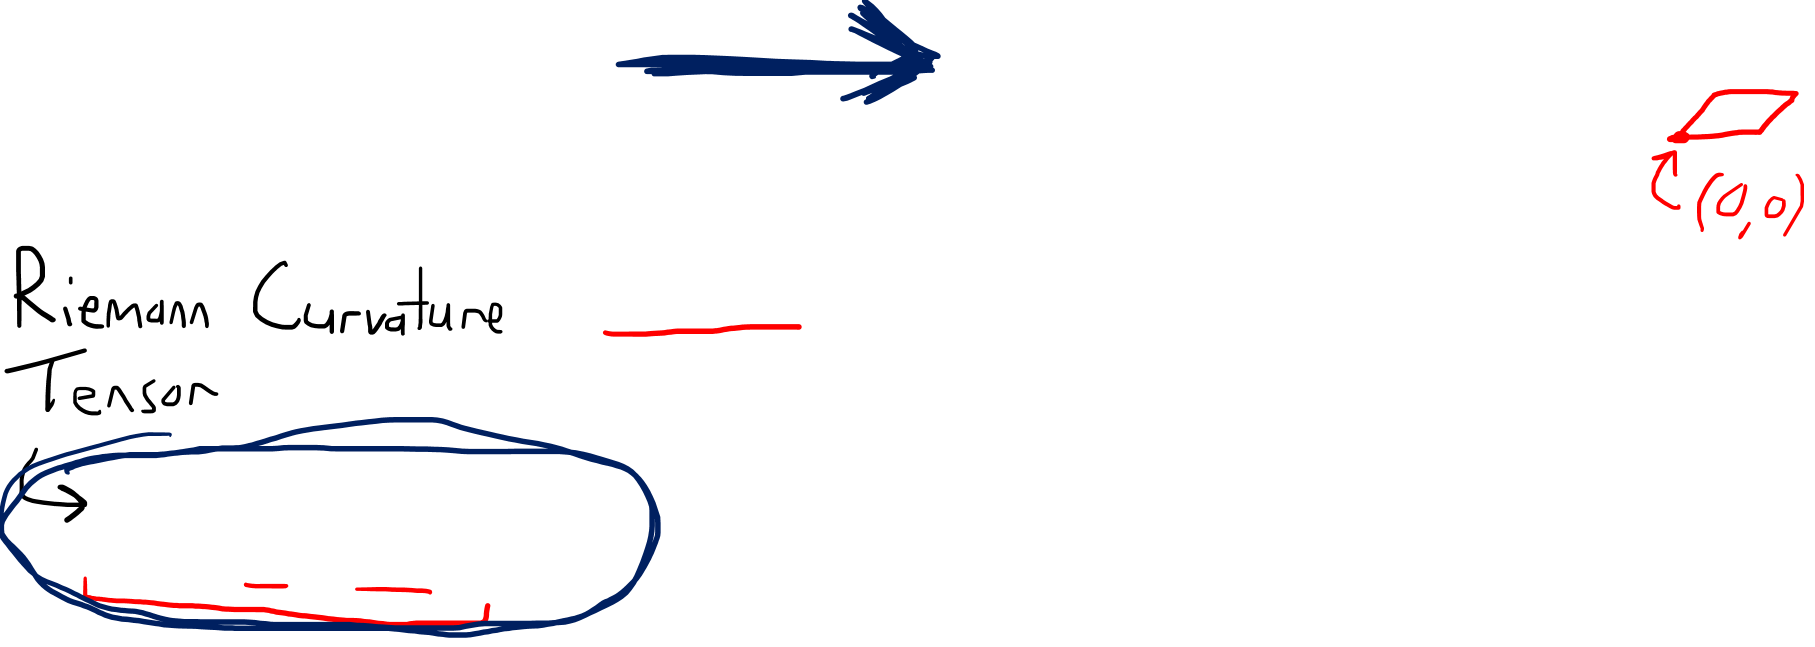 (0,0)
Riemann Curvature
Tensor